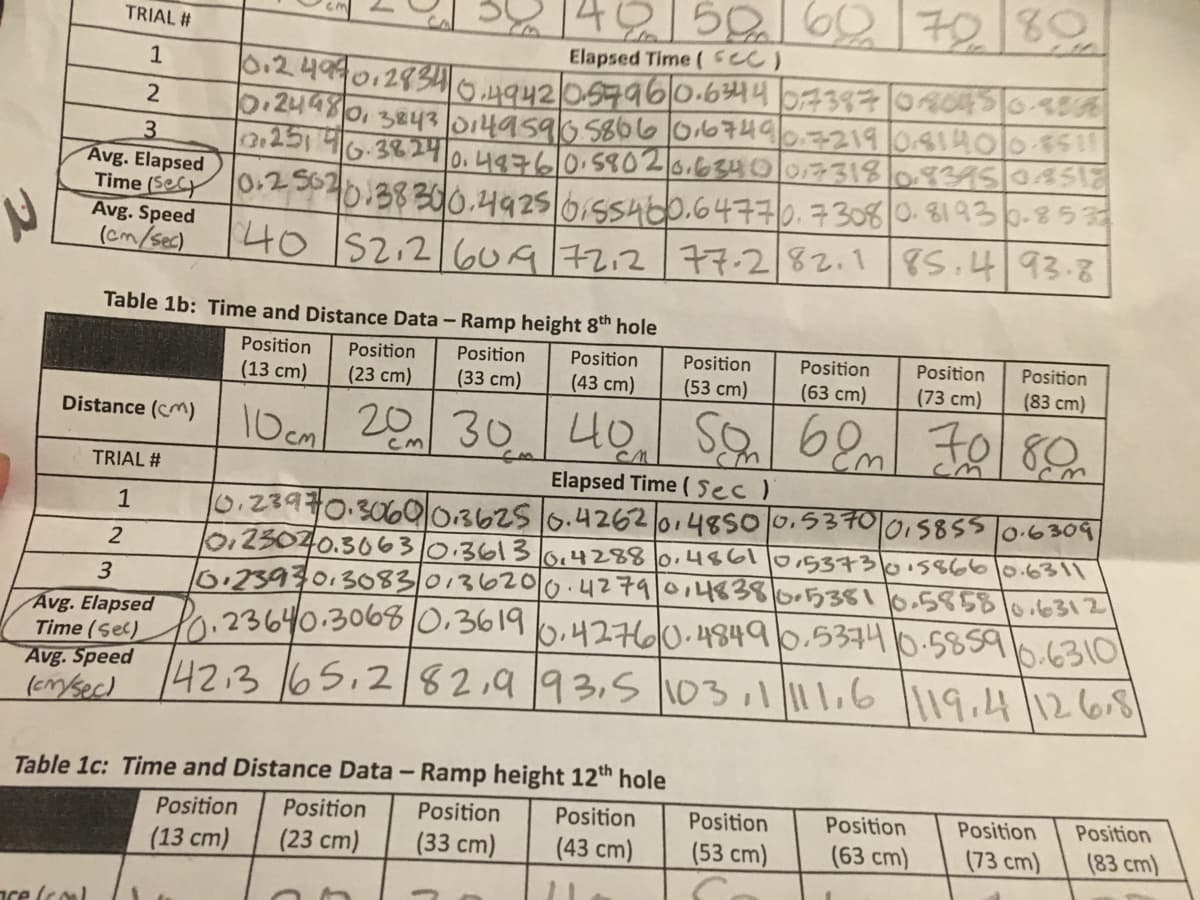 cm cm 30 cm 40 cm 50 cm 60 cm 70 cm 80 cm
TRIAL #
Elapsed Time ( sec )
1 0.2494 0.2834 0.4942 0.5796 0.6344 0.7387
2 0.2498 0.3843 0.4959 0.5806 0.6749 0.7219 0.8140 0.8511
3 0.2514 0.3824 0.4876 0.5802 0.6340 0.7318 0.8395 0.8518
Avg. Elapsed Time (sec) 0.2502 0.3830 0.4925 0.5540 0.6477 0.7308 0.8193 0.853
Avg. Speed (cm/sec) 40 52.2 60.9 72.2 77.2 82.1 85.4 93.8
Table 1b: Time and Distance Data – Ramp height 8th hole
Position Position Position Position Position Position Position Position
(13 cm) (23 cm) (33 cm) (43 cm) (53 cm) (63 cm) (73 cm) (83 cm)
Distance (cm) 10 cm 20 cm 30 cm 40 cm 50 cm 60 cm 70 cm 80 cm
TRIAL #
Elapsed Time ( sec )
1 0.2397 0.3060 0.3625 0.4262 0.4850 0.5370 0.5855 0.6309
2 0.2302 0.3063 0.3613 0.4288 0.4861 0.5373 0.5866 0.6311
3 0.2393 0.3083 0.3620 0.4279 0.4838 0.5381 0.5858 0.6312
Avg. Elapsed Time (sec) 0.2364 0.3068 0.3619 0.4276 0.4849 0.5374 0.5859 0.6310
Avg. Speed (cm/sec) 42.3 65.2 82.9 93.5 103.1 111.6 119.4 126.8
Table 1c: Time and Distance Data – Ramp height 12th hole
Position Position Position Position Position Position Position Position
(13 cm) (23 cm) (33 cm) (43 cm) (53 cm) (63 cm) (73 cm) (83 cm)